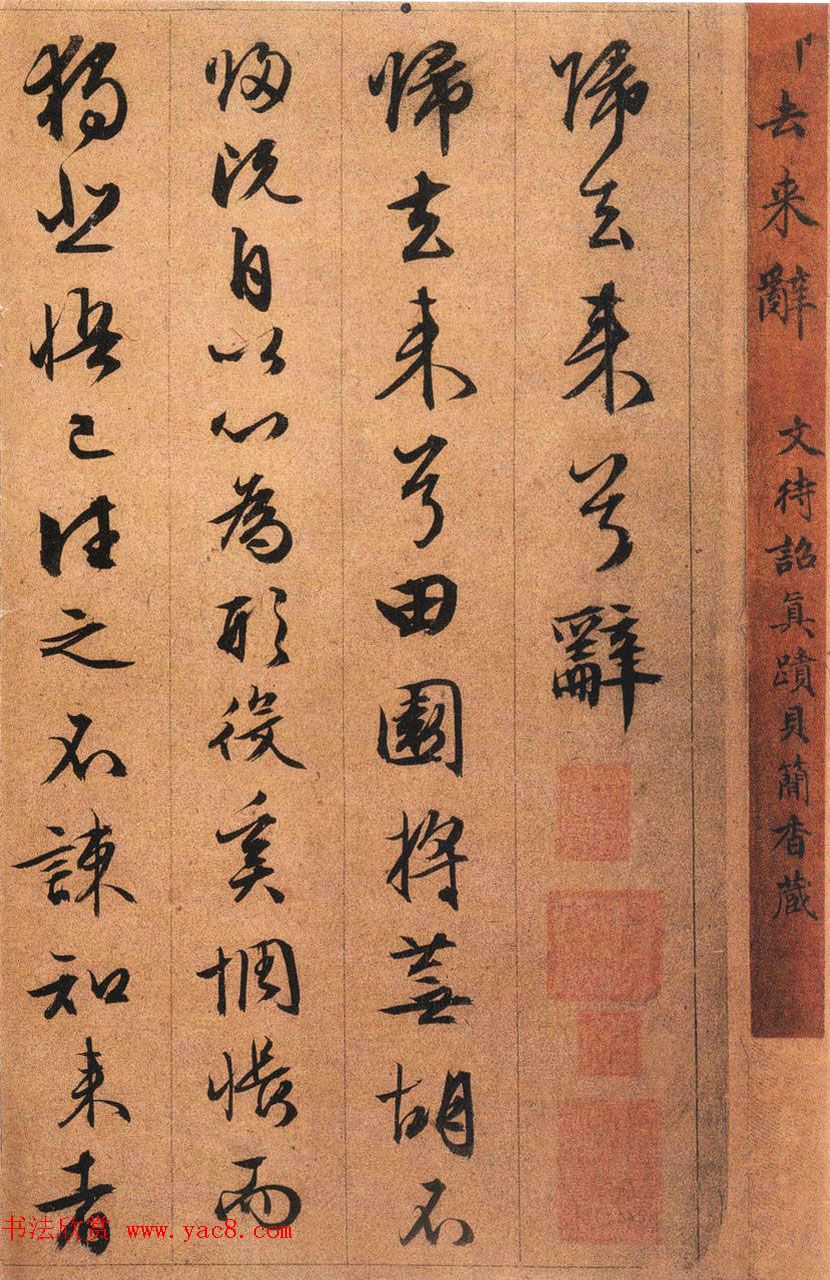 去来辭 文待詔真蹟貝簡香藏
歸去来兮辭
歸去来兮田園將蕪胡不
歸既自以心為形役奚惆悵而
獨悲悟已往之不諫知来者
书法欣赏 www.yac8.com